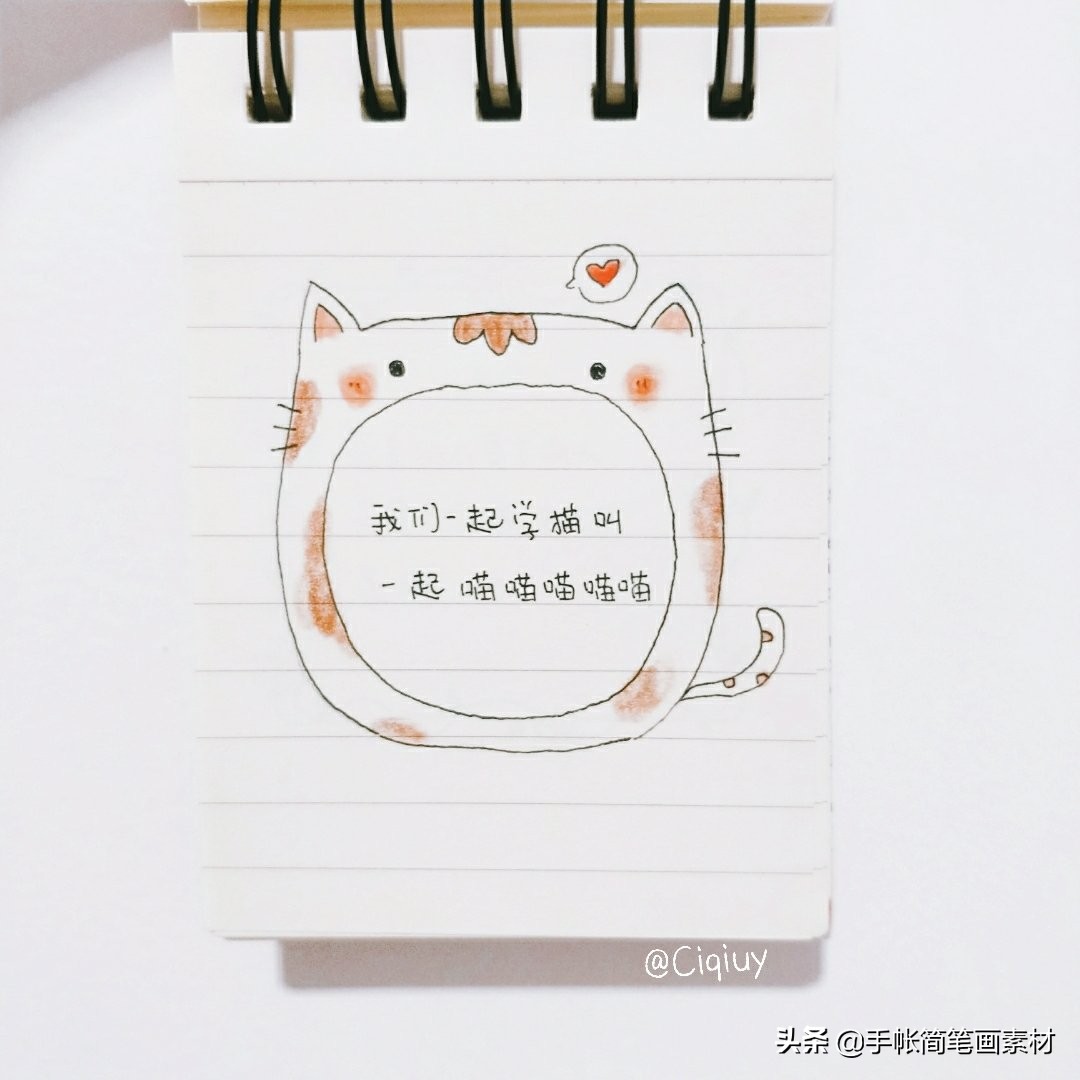 我们一起学猫叫
一起喵喵喵喵喵
@Ciqiuy
头条 @手帐简笔画素材